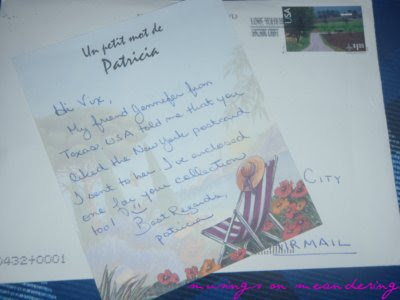 Un petit mot de
Patricia
Hi Vix,
My friend Jennifer from
Texas, USA told me that you
liked the New York postcard
I sent to her. I've enclosed
one for your collection
too!
Best Regards,
Patricia
USA
CITY
AIRMAIL
0432+0001
musings on meandering